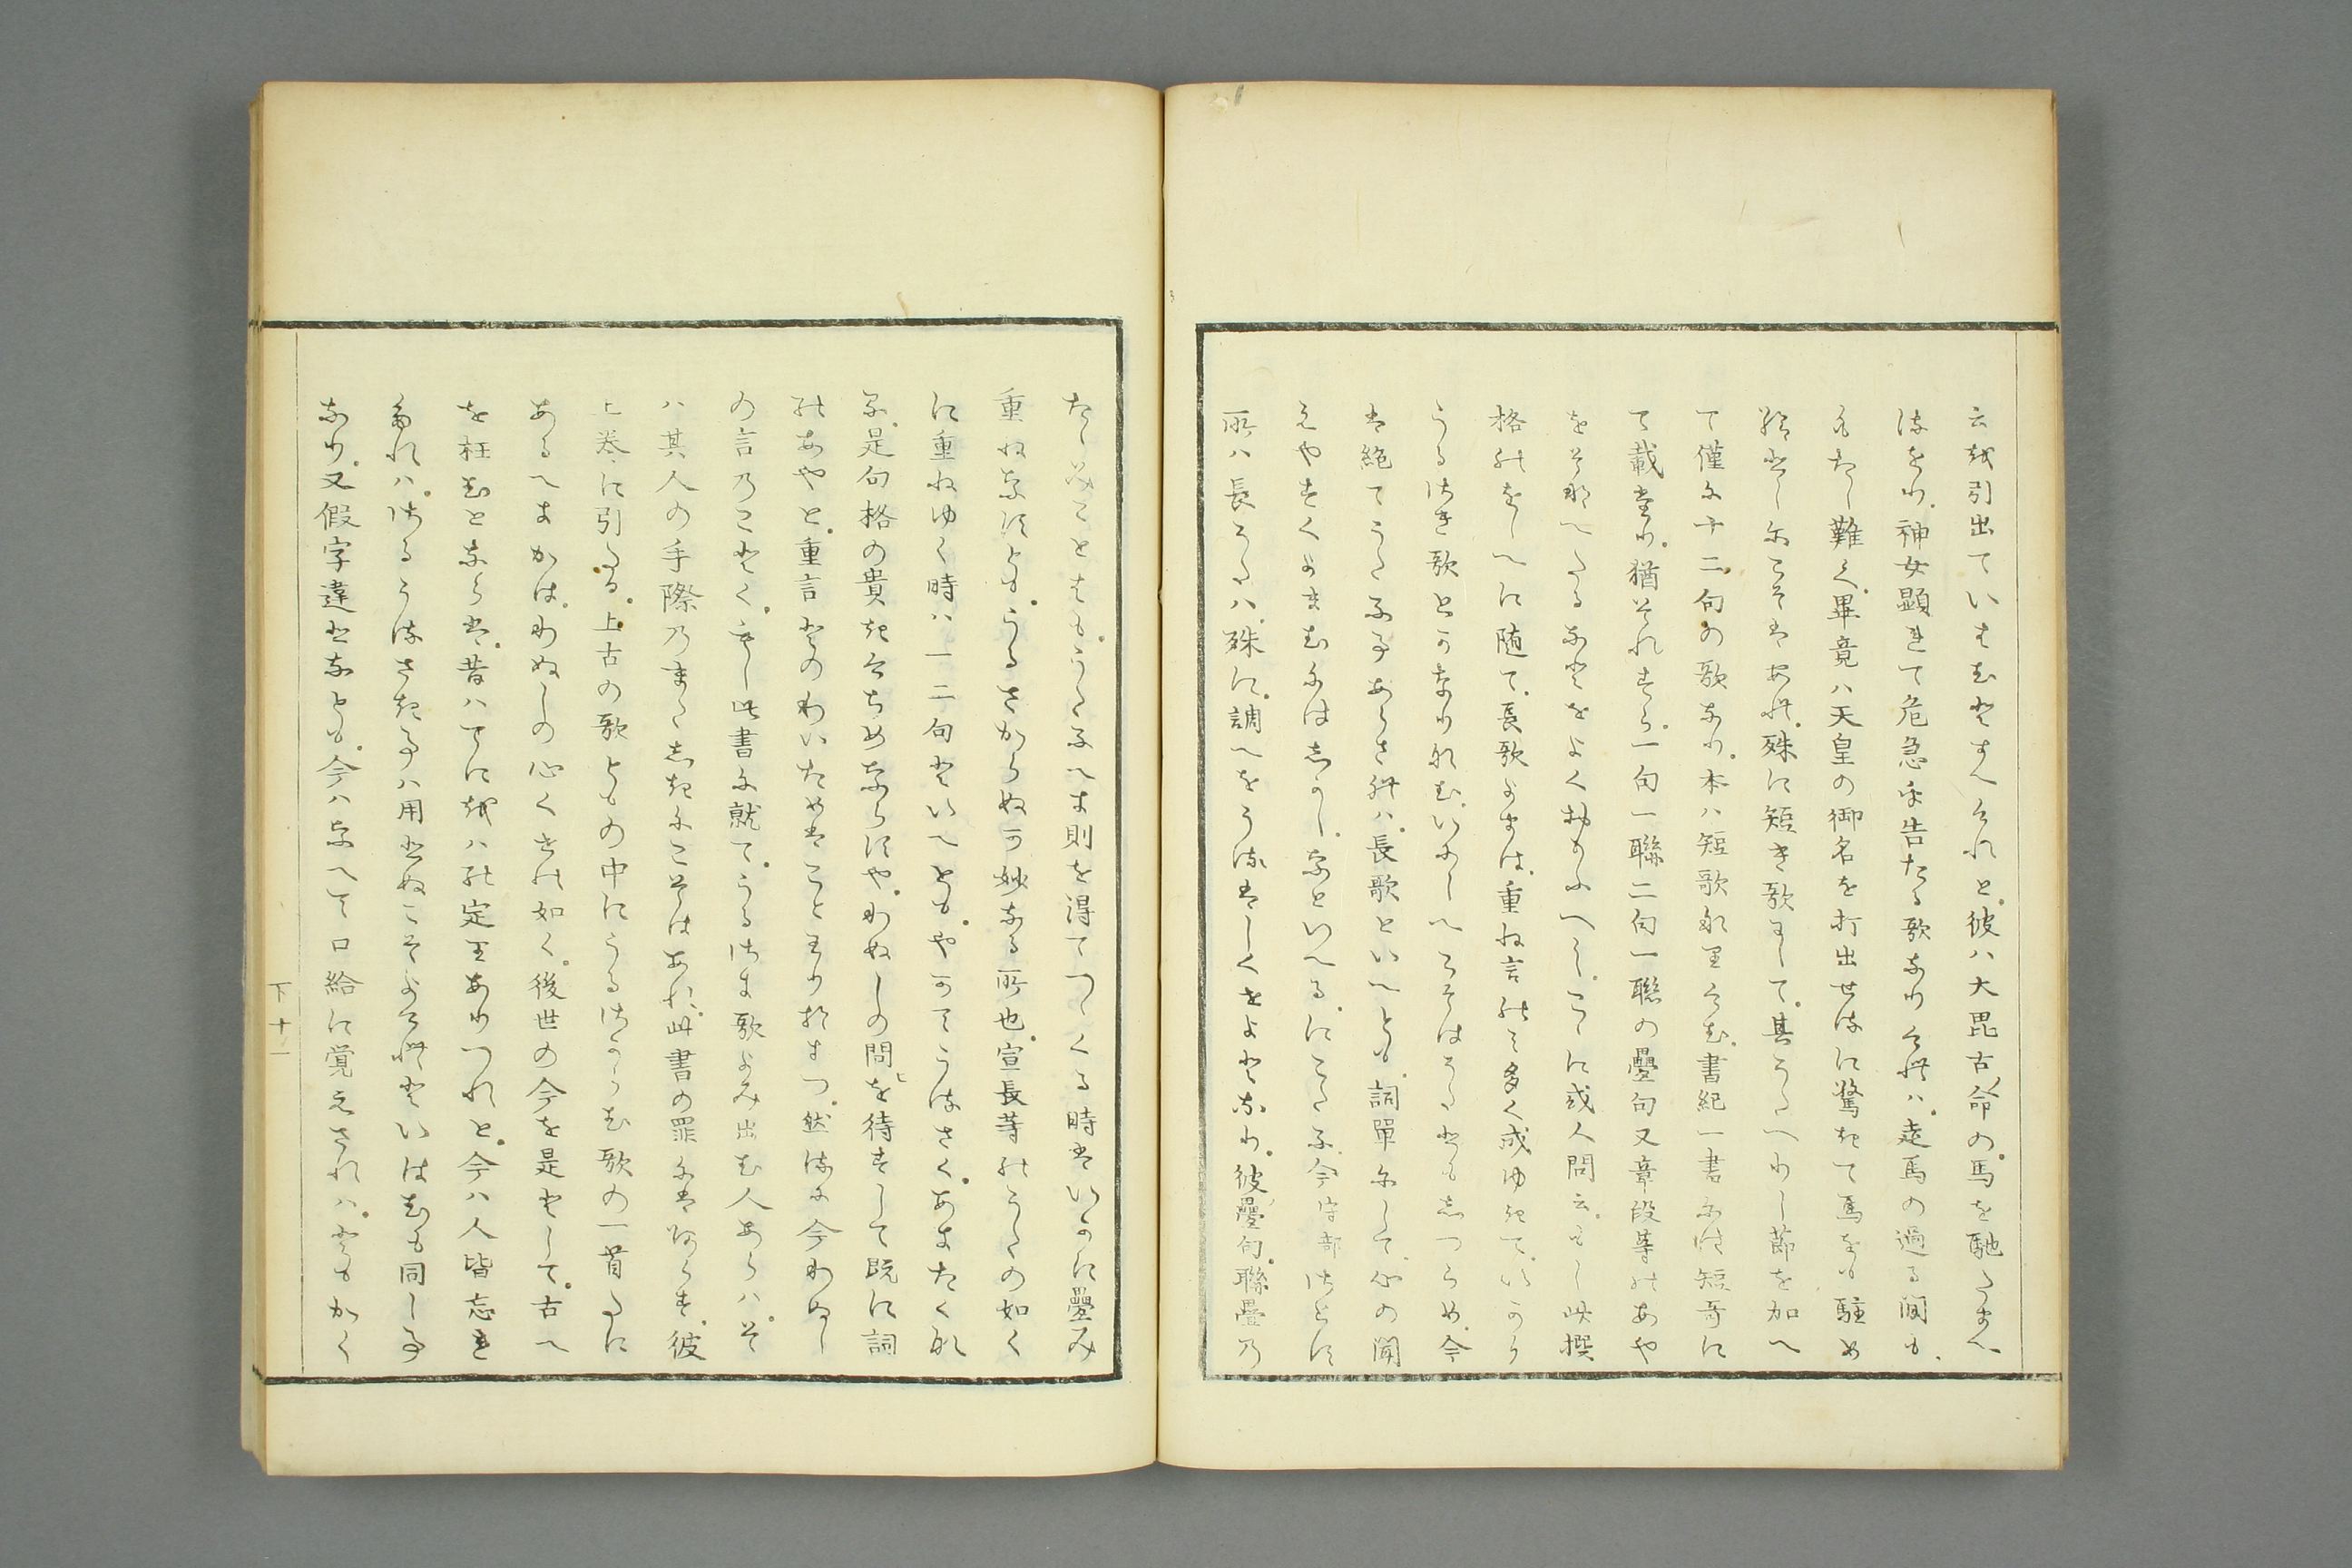 云越引出ていはむとすへけれと。彼ハ大毘古命の馬を馳たまへ
るをり。神女顕れて危急を告たる歌なりけれハ。走馬の過る間も。
もたし難く。畢竟ハ天皇の御名を打出せるに驚きて馬をも駐め
給としにこそはあれ。殊に短き歌にして。其うたへりし節を加へ
て僅に十二句の歌なり。本ハ短歌なりけむ。書紀一書には短哥に
て載たり。猶それすら。一句一聯二句一聯の疊句又章段等のあや
をそなへたるなとをよくおもふへし。こゝに或人問云。もし此撰
格のをしへに随て。長歌よまは。重ね言のミ多く成ゆきて。いかう
うるさき歌とかなりなむ。いにしへこそはうたひもしつらめ。今
は絶てうたふ事あらされハ。長歌といへとも。詞單にして。心の聞
えやすくよまむにはしかし。なといへる。にこたふ。今守部さとす
所ハ長うたハ。殊に。調へをうるはしくせよとなり。彼疊句。聯疊乃
たゝみことはも。うたふへき則を得てつゝくる時は。いかに疊み
重ねなすとも。うるさからぬか妙なる所也。宣長等のうたの如く
に重ねゆく時ハ一二句といへとも。やかてうるさく。あまたくな
る。是句格の貴きけちめならすや。わぬしの問を待すして既に詞
のあやと。重言との、わいためはことわりおきつ。然るに今わぬし
の言乃ことく。もし此書に就て。うるさき歌よみ出む人あらハ。そ
ハ其人の手際乃まゝしきにこそはあれ。此書の罪にはあらす。彼
上巻に引たる。上古の歌ともの中にうるさからむ歌の一首たに
あるへきかは。わぬしの心くせの如く。後世の今を是として。古へ
を枉むとならは。昔ハてにをハの定りありつれと。今ハ人皆忘れ
たれハ。さるうるさき事ハ用ひぬこそよけれといはむも同し事
なり。又假字違ひなとも。今ハなへて口給に覚えされハ。ともかく
下 十一